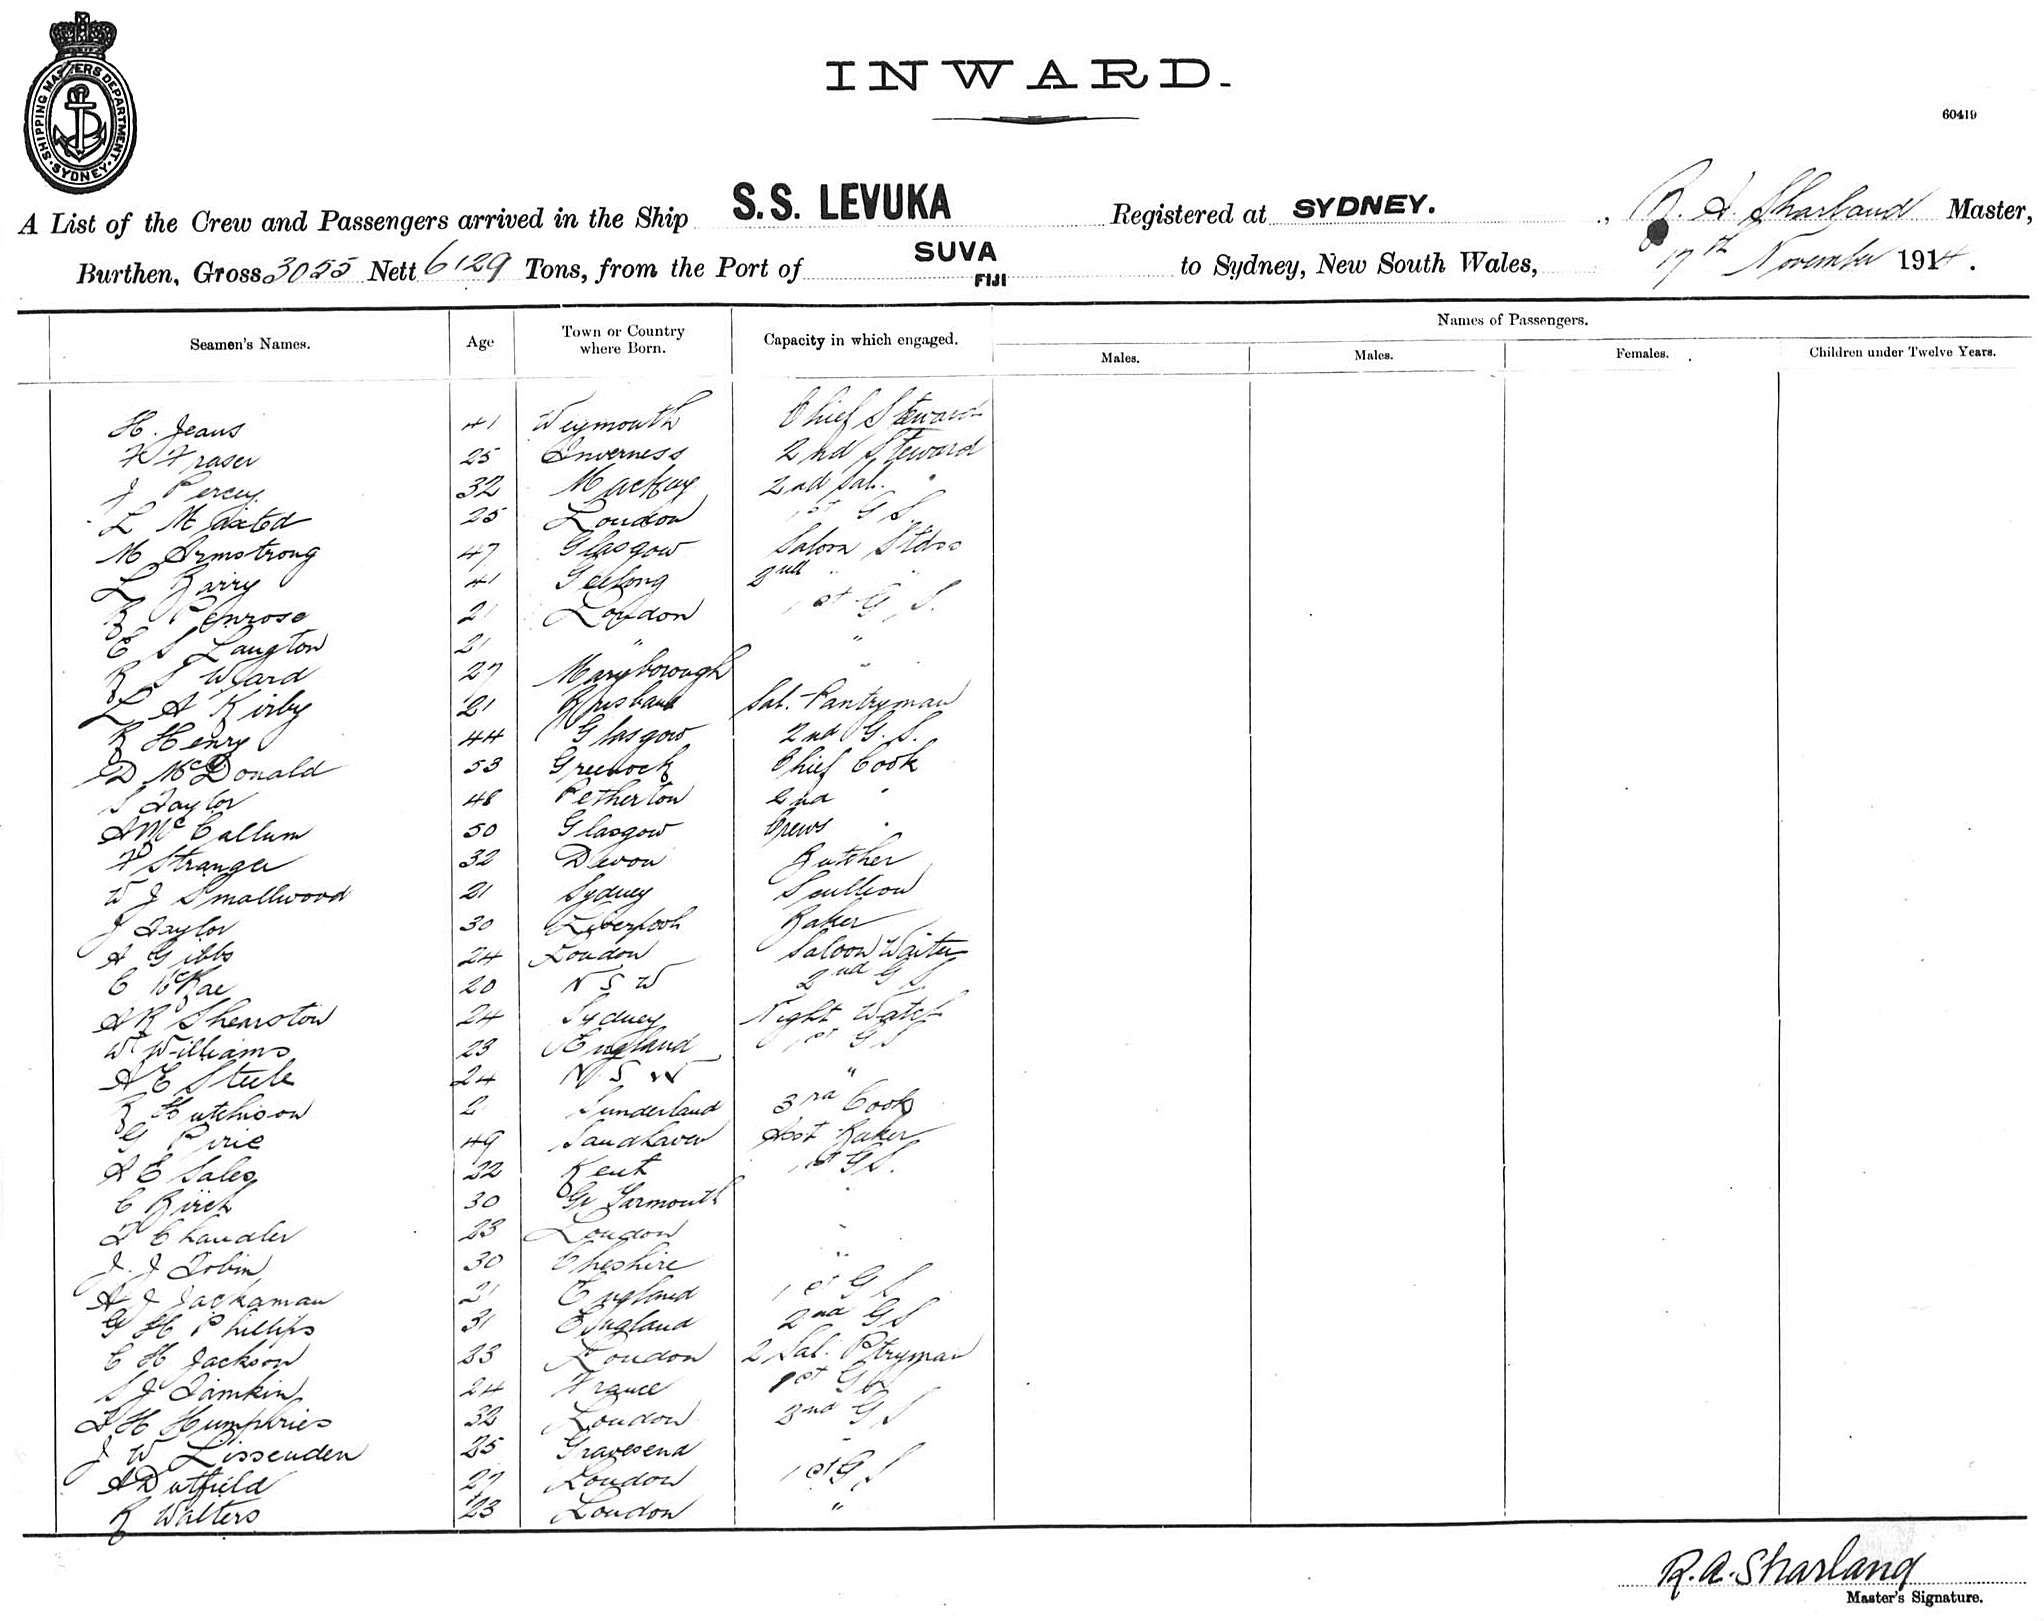 SHIPPING MASTERS DEPARTMENT · SYDNEY ·
INWARD.
60419
A List of the Crew and Passengers arrived in the Ship S.S. LEVUKA Registered at SYDNEY. , R. A. Sharland Master,
Burthen, Gross 3055 Nett 6129 Tons, from the Port of SUVA FIJI to Sydney, New South Wales, 17th November 1914.
Seamen's Names. Age Town or Country where Born. Capacity in which engaged. Names of Passengers.
Males. Males. Females. Children under Twelve Years.
H. Jeans 41 Weymouth Chief Steward
F Fraser 25 Inverness 2nd Steward
J Percy 32 Mackay 2nd Sal. "
L Maxted 25 London 1st G S.
M Armstrong 47 Glasgow Saloon Stdss
L Barry 41 Geelong 2nd " "
R Penrose 21 London 1st G S.
E S Langton 21 " "
R S Ward 27 Maryborough "
L A Kirby 21 Brisbane Sal. Pantryman
R Henry 44 Glasgow 2nd G. S.
D McDonald 53 Greenock Chief Cook
S Taylor 48 Petherton 2nd "
A McCallum 50 Glasgow Crews "
F Stranger 32 Devon Butcher
W J Smallwood 21 Sydney Scullion
J Taylor 30 Liverpool Baker
A Gibbs 24 London Saloon Waiter
C McRae 20 N S W 2nd G S
A R Shearston 24 Sydney Night Watch
W Williams 23 England 1st G S
A E Steele 24 N S W "
R Hutchison 2 Sunderland 3rd Cook
G Pirie 49 Sandhaven Asst Baker
A E Sales 22 Kent 1st G S.
C Birch 30 Gr Yarmouth "
T Chandler 23 London "
J. J Tobin 30 Cheshire "
A J Jackaman 21 England 1st G S
G H Phillips 31 England 2nd G S
C H Jackson 23 London 2 Sal. Ptryman
S J Tamkin 24 France 1st G S
T H Humphries 32 London 2nd G S
J W Lissenden 25 Gravesend "
A Dutfield 27 London 1st G S
R Walters 23 London "
R.A. Sharland
Master's Signature.